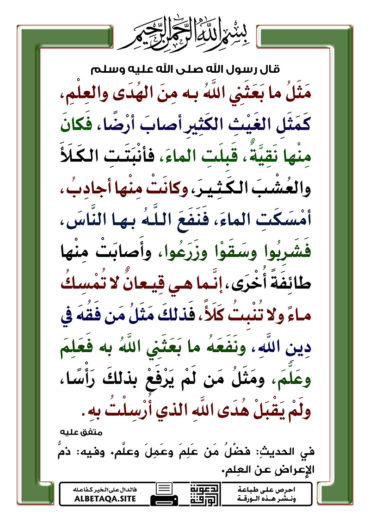 بِسْمِ اللَّهِ الرَّحْمَٰنِ الرَّحِيمِ
قال رسول الله صلى الله عليه وسلم
مَثَلُ ما بَعَثَنِي اللَّهُ به مِنَ الهُدَى والعِلْمِ،
كَمَثَلِ الغَيْثِ الكَثِيرِ أصابَ أرْضًا، فَكانَ
مِنْها نَقِيَّةٌ، قَبِلَتِ الماءَ، فأنْبَتَتِ الكَلَأَ
والعُشْبَ الكَثِيرَ، وكانَتْ مِنْها أجادِبُ،
أمْسَكَتِ الماءَ، فَنَفَعَ اللَّهُ بها النَّاسَ،
فَشَرِبُوا وسَقَوْا وزَرَعُوا، وأَصابَتْ مِنْها
طائِفَةً أُخْرَى، إنَّما هي قِيعانٌ لا تُمْسِكُ
ماءً ولا تُنْبِتُ كَلَأً، فَذلكَ مَثَلُ مَن فَقُهَ في
دِينِ اللَّهِ، ونَفَعَهُ ما بَعَثَنِي اللَّهُ به فَعَلِمَ
وعَلَّمَ، ومَثَلُ مَن لَمْ يَرْفَعْ بذلكَ رَأْسًا،
ولَمْ يَقْبَلْ هُدَى اللَّهِ الذي أُرْسِلْتُ بهِ.
متفق عليه
في الحديثِ: فضْلُ مَن عَلِمَ وعَمِلَ وعلَّم. وفيه: ذمُّ
الإعراض عن العِلم.
احرص على طباعة
ونشر هذه الورقة
الدعوية
الورقة
فالدال على الخير كفاعله
ALBETAQA.SITE